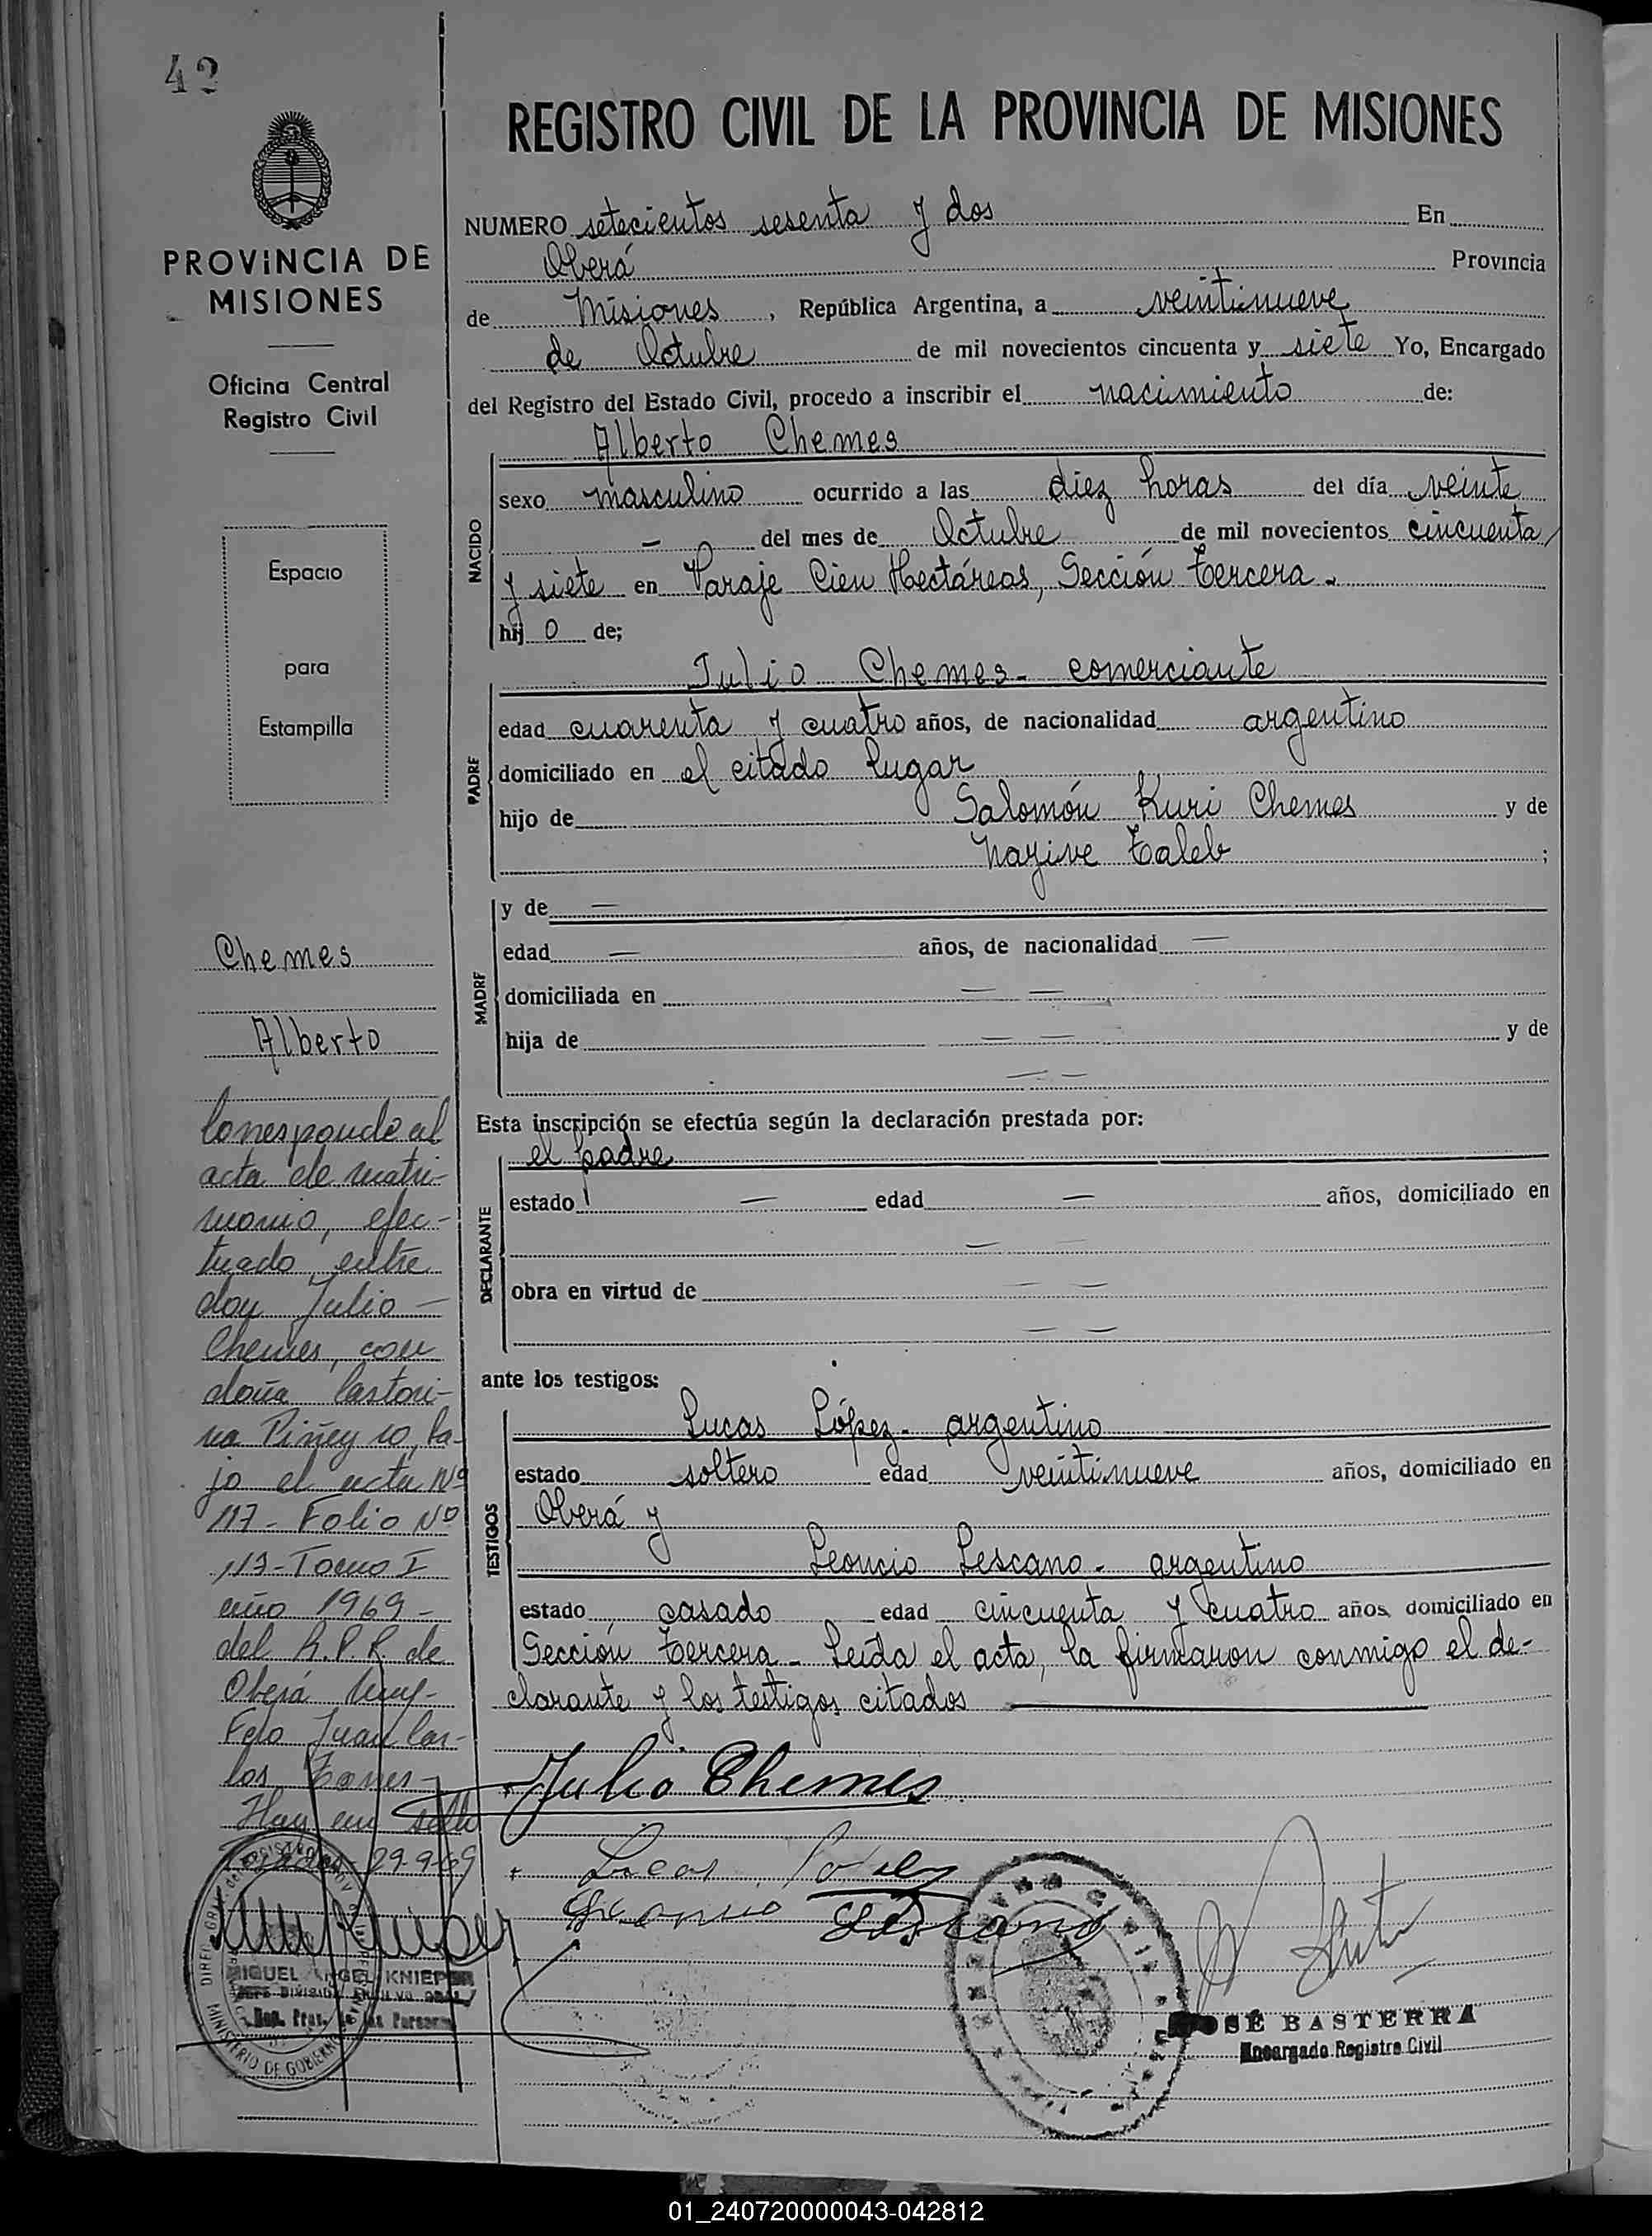 42
PROVINCIA DE
MISIONES
Oficina Central
Registro Civil
Espacio
para
Estampilla
Chemes
Alberto
Corresponde al
acta de matri-
monio, efec-
tuado entre
don Julio -
Chemes, con
doña Castori-
na Piñeyro, ba-
jo el acta Nº
117 - Folio Nº
117 - Tomo I
año 1969 -
del R.P.P. de
Oberá
Fdo Juan Car-
los
Hay un sello
29-9-69
DIREC. GRAL. del REGISTRO
MINISTERIO DE GOBIERNO
MIGUEL ANGEL KNIEPER
REGISTRO CIVIL DE LA PROVINCIA DE MISIONES
NUMERO setecientos sesenta y dos En
Oberá Provincia
de Misiones, República Argentina, a veintinueve
de Octubre de mil novecientos cincuenta y siete Yo, Encargado
del Registro del Estado Civil, procedo a inscribir el nacimiento de:
Alberto Chemes
NACIDO
sexo masculino ocurrido a las diez horas del día veinte
— del mes de Octubre de mil novecientos cincuenta
y siete en Paraje Cien Hectáreas, Sección tercera.
hijo de;
PADRE
Julio Chemes - comerciante
edad cuarenta y cuatro años, de nacionalidad argentino
domiciliado en el citado lugar
hijo de Salomón Kuri Chemes y de
Nayive Taleb ;
MADRE
y de —
edad — años, de nacionalidad —
domiciliada en — —
hija de — — y de
— —
Esta inscripción se efectúa según la declaración prestada por:
DECLARANTE
el padre
estado — edad — años, domiciliado en
—
obra en virtud de — —
— —
ante los testigos:
TESTIGOS
Lucas López - argentino
estado soltero edad veintinueve años, domiciliado en
Oberá y
Leoncio Lescano - argentino
estado casado edad cincuenta y cuatro años domiciliado en
Sección tercera - Leída el acta, la firmaron conmigo el de-
clarante y los testigos citados
Julio Chemes
Lucas López
Leoncio Lescano
JOSÉ BASTERRA
Encargado Registro Civil
01_240720000043-042812